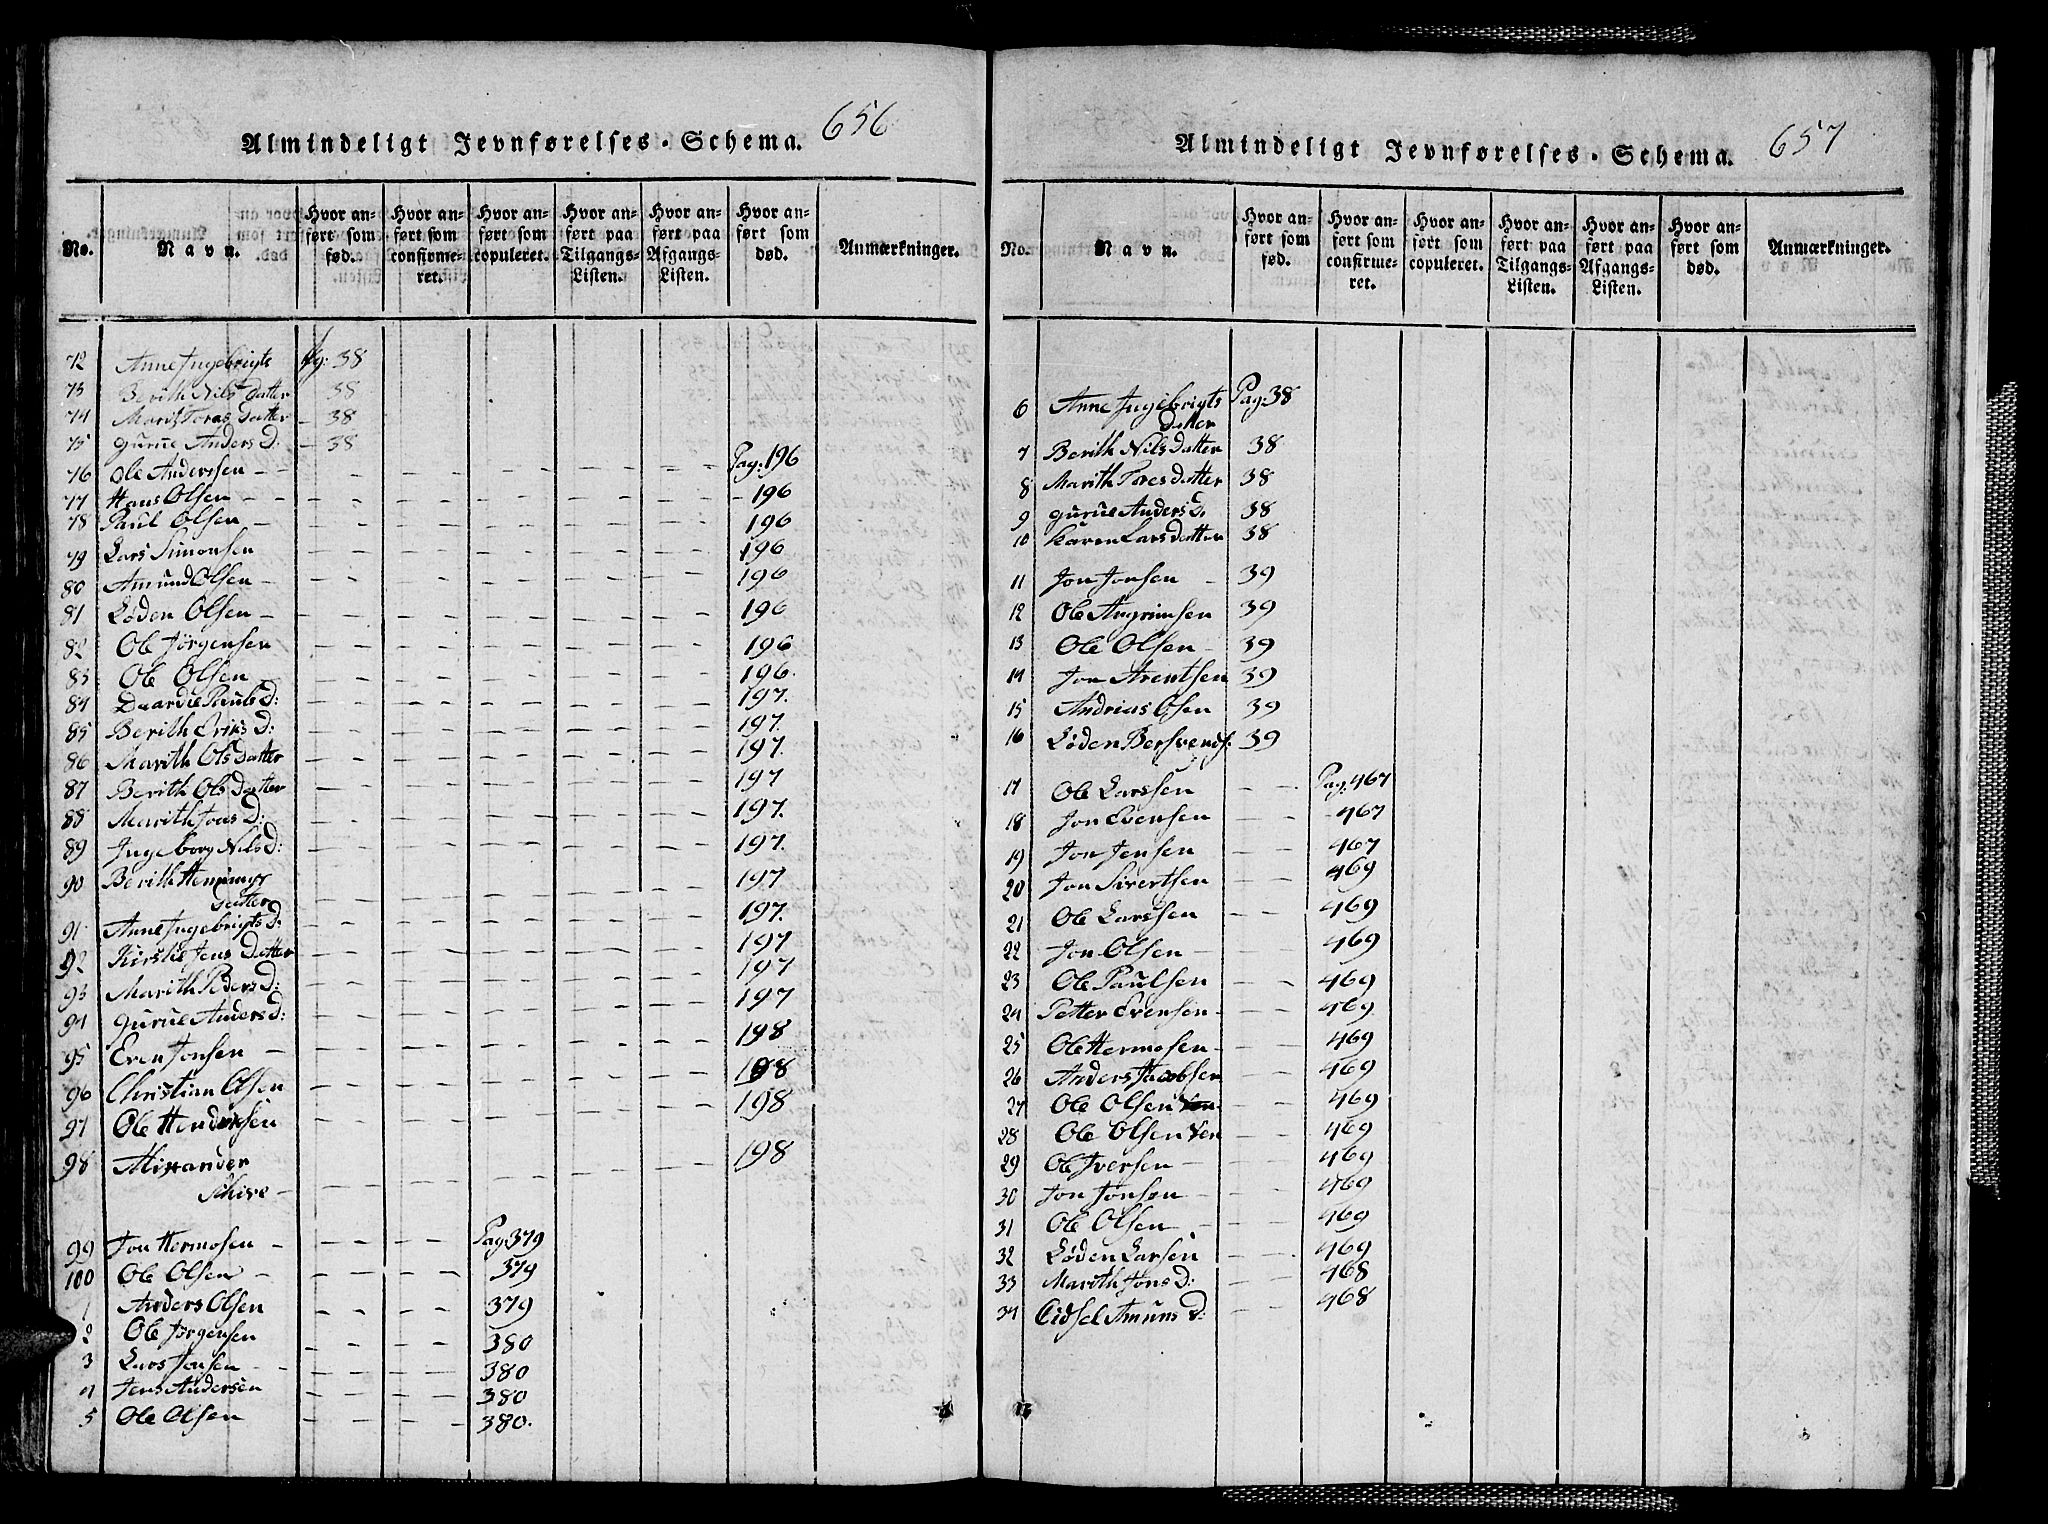 656
Almindeligt Jevnførelses-Schema.
No. Navn. Hvor anført som fød. Hvor anført som confirmeret. Hvor anført som copuleret. Hvor anført paa Tilgangs-Listen. Hvor anført paa Afgangs-Listen. Hvor anført som død. Anmærkninger.
72 Anne Ingebrigts Pg: 38
73 Berith Nils Datter 38
74 Marit Toras Datter - 38
75 Gurue Anders D: - 38
76 Ole Anderssen - - Pag: 196
77 Hans Olsen - - 196
78 Paul Olsen - 196
79 Lars Simonsen 196
80 Amund Olsen - 196
81 Løden Olsen - 196
82 Ole Jørgensen 196
83 Ole Olsen 196.
84 Pauls D: 197.
85 Berith Eriks D: 197.
86 Marith Ols Datter 197.
87 Berith Ols Datter 197
88 Marith Jons D: 197.
89 Ingeborg Nils D: 197.
90 Berith Hemings
Datter 197
91 Anne Ingebrigts D: 197.
92 Kirstie Jens Datter 197
93 Marith Peders D: 197
94 Gurue Anders D: 197
95 Even Jonsen - 198
96 Christian Olsen 198
97 Ole Hendriksen 198
98 Alixander
Schive - 198
99 Jon Hermosen - Pag: 379
100 Ole Olsen - 379
1 Anders Olsen 379
2 Ole Jørgensen 380
3 Lars Jonsen - - 380
4 Jens Andersen 380
5 Ole Olsen 380.
657
Almindeligt Jevnførelses-Schema.
No. Navn. Hvor anført som fød. Hvor anført som confirmeret. Hvor anført som copuleret. Hvor anført paa Tilgangs-Listen. Hvor anført paa Afgangs-Listen. Hvor anført som død. Anmærkninger.
6 Anne Ingebrigts Pag: 38
Datter
7 Berith Nils Datter 38
8 Marith Tores Datter 38
9 Gurue Anders D. 38
10 Karen Lars Datter 38
11 Jon Jonsen - 39
12 Ole Angrimsen 39
13 Ole Olsen - 39
14 Jon Arentsen 39
15 Andrias Olsen 39
16 Løden Bersvends: 39
17 Ole Larssen Pag: 467
18 Jon Evensen - 467
19 Jon Jensen 467
20 Jon Sivertsen 469
21 Ole Larssen 469
22 Jon Olsen - 469
23 Ole Paulsen 469
24 Petter Evensen - 469
25 Ole Hermosen - 469
26 Anders Jacobsen 469
27 Ole Olsen 469
28 Ole Olsen Ven 469
29 Ole Iversen - 469
30 Jon Jonsen - 469
31 Ole Olsen - 469
32 Løden Larsen 469
33 Marith Jons D: 468
34 Eidsel Amuns D: 468